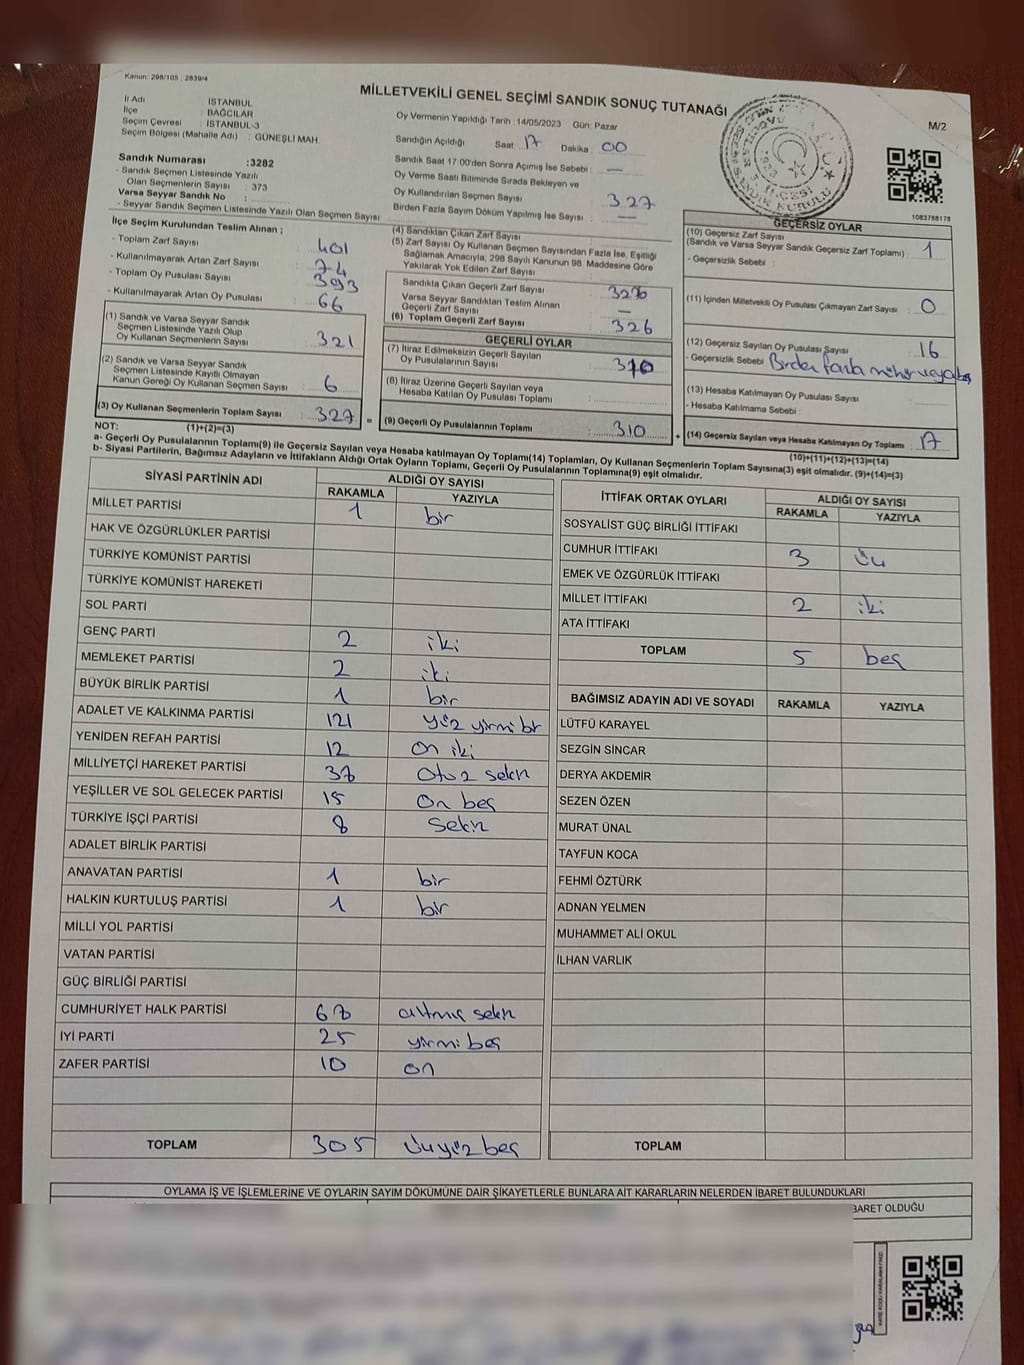 Kanun: 298/105 , 2839/4
MİLLETVEKİLİ GENEL SEÇİMİ SANDIK SONUÇ TUTANAĞI
M/2
İl Adı : İSTANBUL
İlçe : BAĞCILAR
Seçim Çevresi : İSTANBUL-3
Seçim Bölgesi (Mahalle Adı) : GÜNEŞLİ MAH.
Sandık Numarası :3282
- Sandık Seçmen Listesinde Yazılı
Olan Seçmenlerin Sayısı : 373
Varsa Seyyar Sandık No :
- Seyyar Sandık Seçmen Listesinde Yazılı Olan Seçmen Sayısı
Oy Vermenin Yapıldığı Tarih :14/05/2023 Gün: Pazar
Sandığın Açıldığı Saat: 17 Dakika : 00
Sandık Saat 17:00'den Sonra Açılmış İse Sebebi : —
Oy Verme Saati Bitiminde Sırada Bekleyen ve
Oy Kullandırılan Seçmen Sayısı : 327
Birden Fazla Sayım Döküm Yapılmış İse Sayısı : —
1083788178
İlçe Seçim Kurulundan Teslim Alınan ;
- Toplam Zarf Sayısı : 401
- Kullanılmayarak Artan Zarf Sayısı : 74
- Toplam Oy Pusulası Sayısı : 393
- Kullanılmayarak Artan Oy Pusulası : 66
(1) Sandık ve Varsa Seyyar Sandık
Seçmen Listesinde Yazılı Olup
Oy Kullanan Seçmenlerin Sayısı : 321
(2) Sandık ve Varsa Seyyar Sandık
Seçmen Listesinde Kayıtlı Olmayan
Kanun Gereği Oy Kullanan Seçmen Sayısı : 6
(3) Oy Kullanan Seçmenlerin Toplam Sayısı : 327
(4) Sandıktan Çıkan Zarf Sayısı
(5) Zarf Sayısı Oy Kullanan Seçmen Sayısından Fazla İse, Eşitliği
Sağlamak Amacıyla, 298 Sayılı Kanunun 98. Maddesine Göre
Yakılarak Yok Edilen Zarf Sayısı
Sandıkta Çıkan Geçerli Zarf Sayısı : 326
Varsa Seyyar Sandıktan Teslim Alınan
Geçerli Zarf Sayısı : —
(6) Toplam Geçerli Zarf Sayısı : 326
GEÇERLİ OYLAR
(7) İtiraz Edilmeksizin Geçerli Sayılan
Oy Pusulalarının Sayısı : 310
(8) İtiraz Üzerine Geçerli Sayılan veya
Hesaba Katılan Oy Pusulası Toplamı :
(9) Geçerli Oy Pusulalarının Toplamı : 310
GEÇERSİZ OYLAR
(10) Geçersiz Zarf Sayısı
(Sandık ve Varsa Seyyar Sandık Geçersiz Zarf Toplamı) : 1
- Geçersizlik Sebebi :
(11) İçinden Milletvekili Oy Pusulası Çıkmayan Zarf Sayısı : 0
(12) Geçersiz Sayılan Oy Pusulası Sayısı : 16
- Geçersizlik Sebebi Birden fazla mühür veya
(13) Hesaba Katılmayan Oy Pusulası Sayısı :
- Hesaba Katılmama Sebebi :
(14) Geçersiz Sayılan veya Hesaba Katılmayan Oy Toplamı : 17
NOT: (1)+(2)=(3)
(10)+(11)+(12)+(13)=(14)
a- Geçerli Oy Pusulalarının Toplamı(9) ile Geçersiz Sayılan veya Hesaba katılmayan Oy Toplamı(14) Toplamları, Oy Kullanan Seçmenlerin Toplam Sayısına(3) eşit olmalıdır. (9)+(14)=(3)
b- Siyasi Partilerin, Bağımsız Adayların ve İttifakların Aldığı Ortak Oyların Toplamı, Geçerli Oy Pusulalarının Toplamına(9) eşit olmalıdır.
SİYASİ PARTİNİN ADI ALDIĞI OY SAYISI
RAKAMLA YAZIYLA
MİLLET PARTİSİ 1 bir
HAK VE ÖZGÜRLÜKLER PARTİSİ
TÜRKİYE KOMÜNİST PARTİSİ
TÜRKİYE KOMÜNİST HAREKETİ
SOL PARTİ
GENÇ PARTİ 2 iki
MEMLEKET PARTİSİ 2 iki
BÜYÜK BİRLİK PARTİSİ 1 bir
ADALET VE KALKINMA PARTİSİ 121 yüz yirmi bir
YENİDEN REFAH PARTİSİ 12 on iki
MİLLİYETÇİ HAREKET PARTİSİ 38 otuz sekiz
YEŞİLLER VE SOL GELECEK PARTİSİ 15 on beş
TÜRKİYE İŞÇİ PARTİSİ 8 sekiz
ADALET BİRLİK PARTİSİ
ANAVATAN PARTİSİ 1 bir
HALKIN KURTULUŞ PARTİSİ 1 bir
MİLLİ YOL PARTİSİ
VATAN PARTİSİ
GÜÇ BİRLİĞİ PARTİSİ
CUMHURİYET HALK PARTİSİ 68 altmış sekiz
İYİ PARTİ 25 yirmi beş
ZAFER PARTİSİ 10 on
TOPLAM 305 üçyüz beş
İTTİFAK ORTAK OYLARI ALDIĞI OY SAYISI
RAKAMLA YAZIYLA
SOSYALİST GÜÇ BİRLİĞİ İTTİFAKI
CUMHUR İTTİFAKI 3 üç
EMEK VE ÖZGÜRLÜK İTTİFAKI
MİLLET İTTİFAKI 2 iki
ATA İTTİFAKI
TOPLAM 5 beş
BAĞIMSIZ ADAYIN ADI VE SOYADI RAKAMLA YAZIYLA
LÜTFÜ KARAYEL
SEZGİN SİNCAR
DERYA AKDEMİR
SEZEN ÖZEN
MURAT ÜNAL
TAYFUN KOCA
FEHMİ ÖZTÜRK
ADNAN YELMEN
MUHAMMET ALİ OKUL
İLHAN VARLIK
TOPLAM
OYLAMA İŞ VE İŞLEMLERİNE VE OYLARIN SAYIM DÖKÜMÜNE DAİR ŞİKAYETLERLE BUNLARA AİT KARARLARIN NELERDEN İBARET BULUNDUKLARI
BARET OLDUĞU